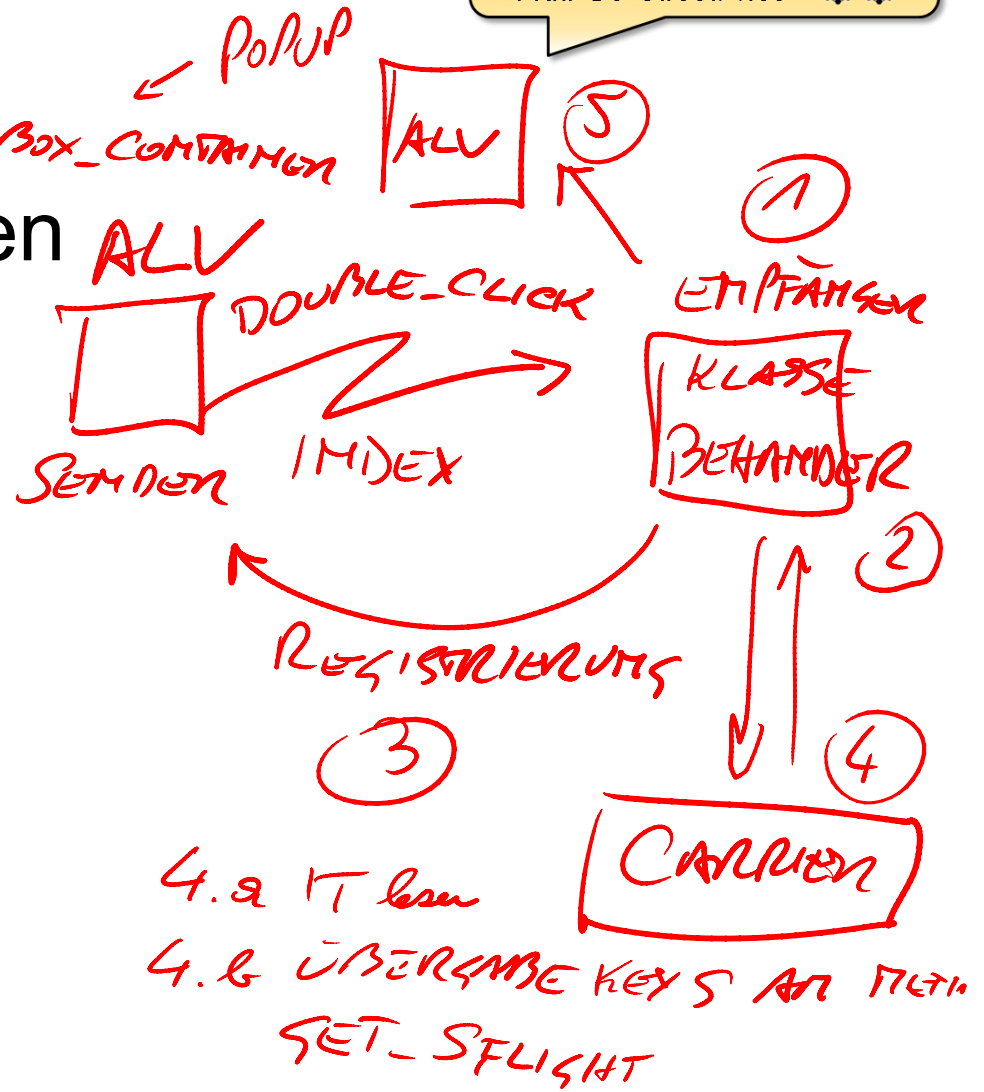 POPUP
BOX_CONTAINER
ALV
5
1
en
ALV
DOUBLE_CLICK
EMPFÄNGER
KLASSE
BEHANDER
INDEX
SENDER
2
REGISTRIERUNG
3
4
CARRIER
4.a IT lesen
4.b ÜBERGABE KEYS AN METH.
GET_SFLIGHT